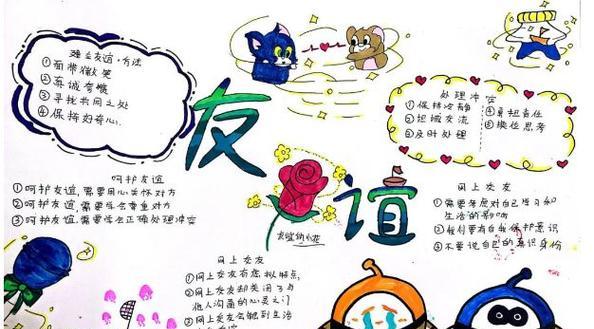 建立友谊·方法
①面带微笑
②真诚夸赞
③寻找共同之处
④保持好奇心
友
谊
处理冲突
①保持冷静
②坦诚交流
③及时处理
④勇担责任
⑤换位思考
呵护友谊
①呵护友谊,需要用心关怀对方
②呵护友谊,需要学会尊重对方
③呵护友谊,需要学会正确处理冲突
网上交友
①需要考虑对自己学习和
生活的影响
②我们要有自我保护意识
③不要说自己的真识身份
网上交友
①网上交友有虚拟特点,
②网上交友却关闭了与
他人沟通的心灵之门
③网上交友会触到生活